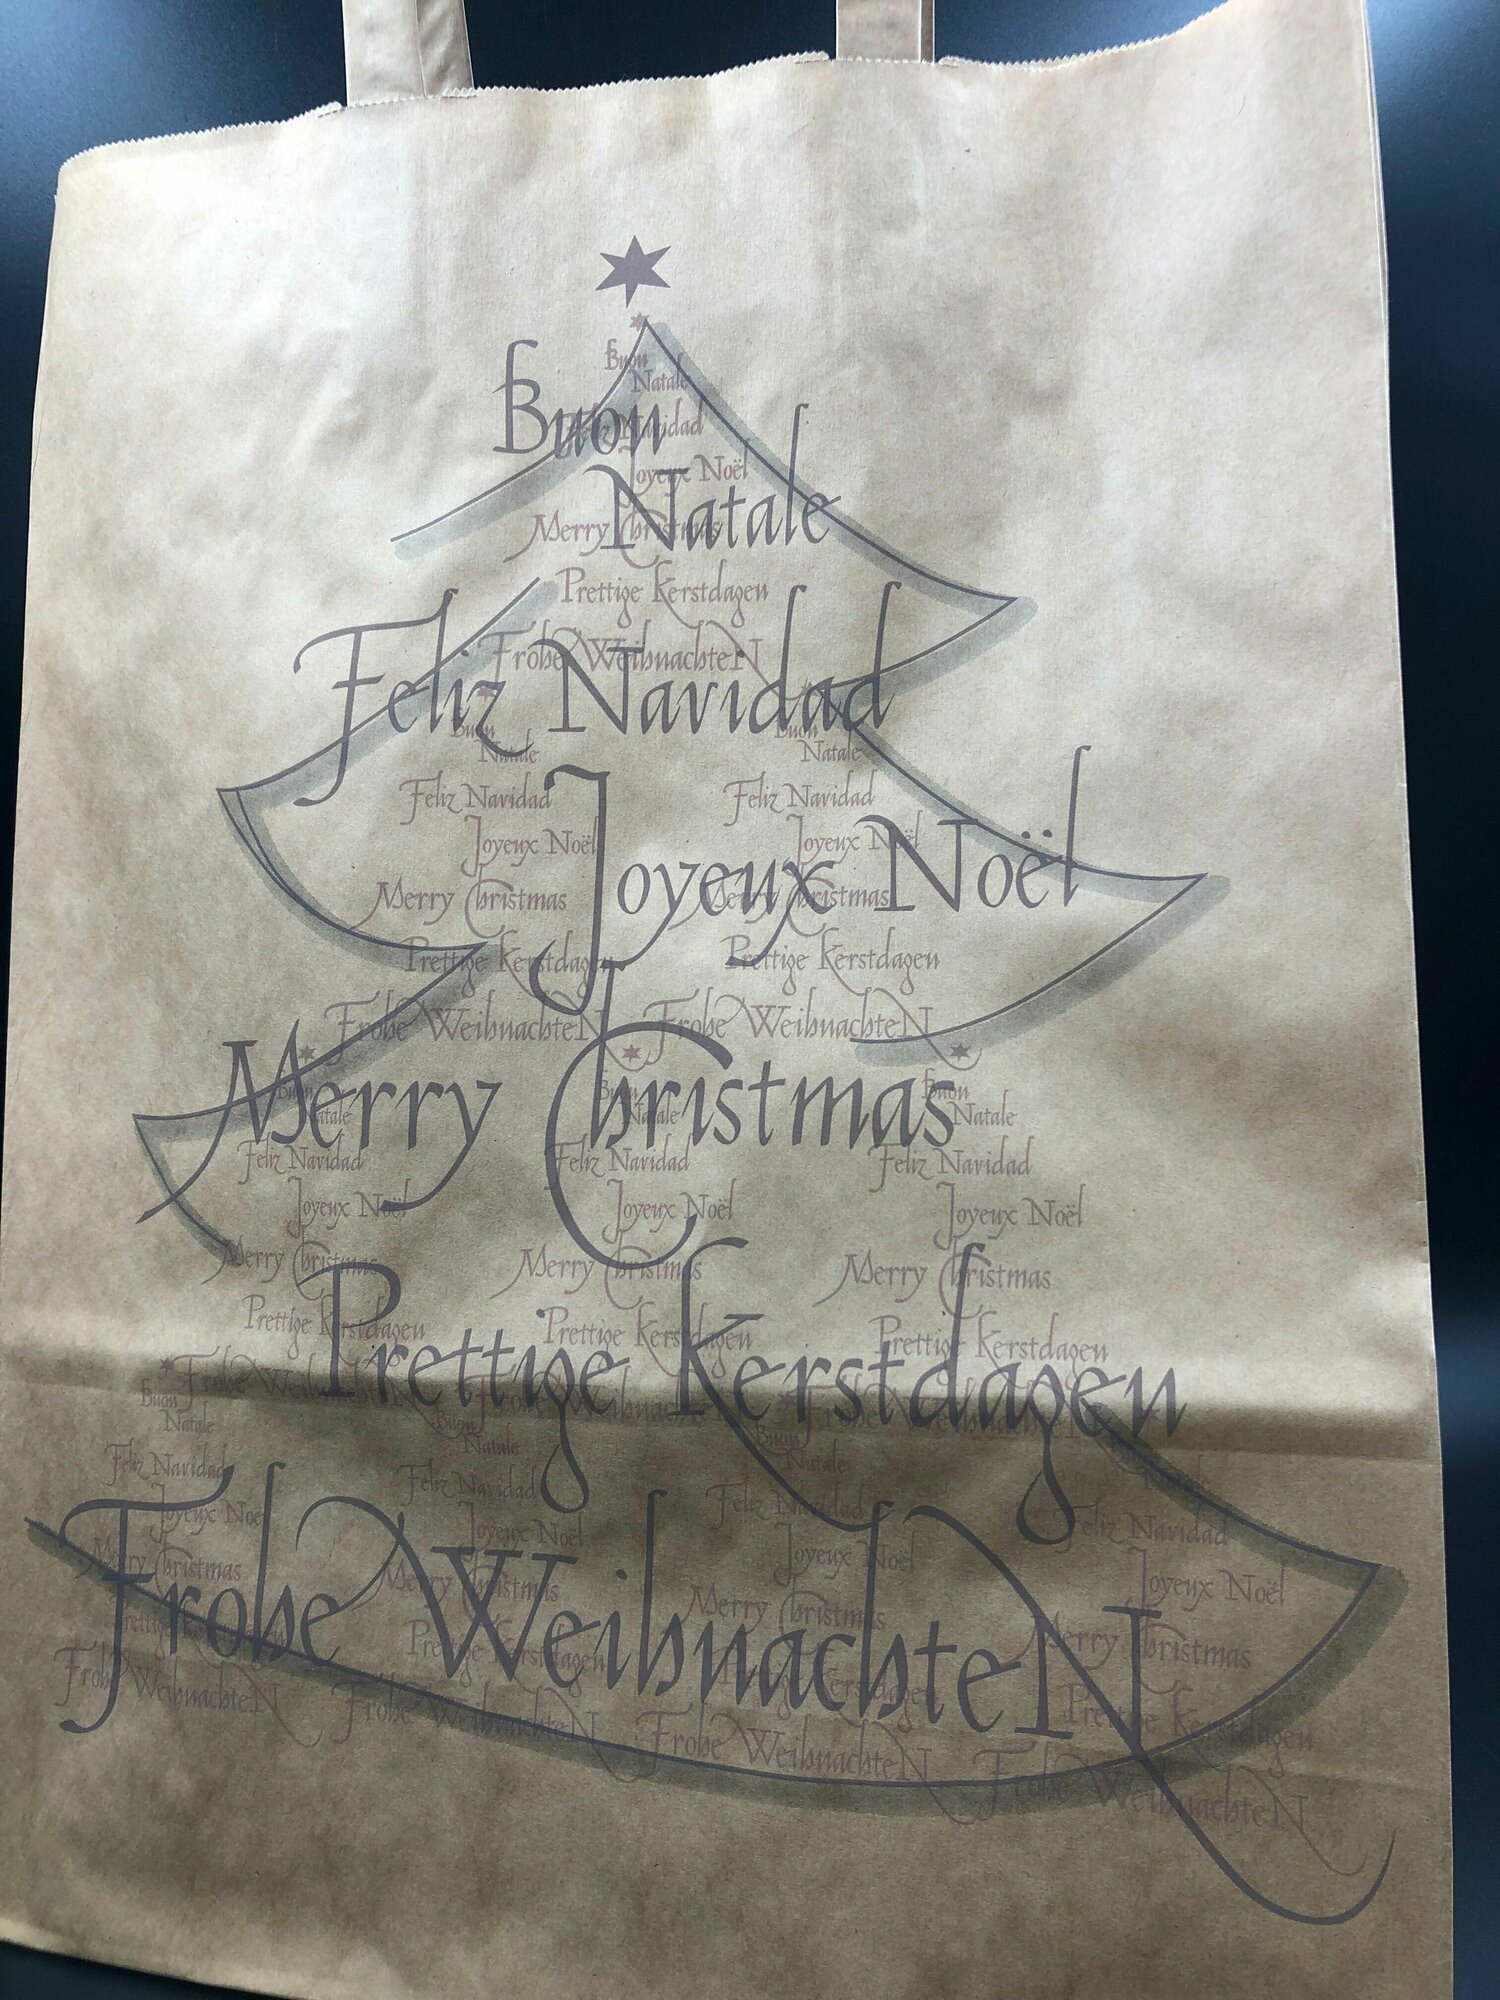 Buon
Natale
Feliz Navidad
Joyeux Noël
Merry Christmas
Prettige Kerstdagen
Frohe WeihnachteN
Buon
Natale
Feliz Navidad
Joyeux Noël
Merry Christmas
Prettige Kerstdagen
Frohe WeihnachteN
Buon
Natale
Feliz Navidad
Joyeux Noël
Merry Christmas
Prettige Kerstdagen
Frohe WeihnachteN
Buon
Natale
Feliz Navidad
Joyeux Noël
Merry Christmas
Prettige Kerstdagen
Frohe WeihnachteN
Buon
Natale
Feliz Navidad
Joyeux Noël
Merry Christmas
Prettige Kerstdagen
Frohe WeihnachteN
Buon
Natale
Feliz Navidad
Joyeux Noël
Merry Christmas
Prettige Kerstdagen
Frohe WeihnachteN
Buon
Natale
Feliz Navidad
Joyeux Noël
Merry Christmas
Prettige Kerstdagen
Buon
Natale
Feliz Navidad
Joyeux Noël
Merry Christmas
Prettige Kerstdagen
Frohe WeihnachteN
Buon
Natale
Feliz Navidad
Joyeux Noël
Merry Christmas
Prettige Kerstdagen
Frohe WeihnachteN
Buon
Natale
Feliz Navidad
Joyeux Noël
Merry Christmas
Kerstdagen
Frohe WeihnachteN
Natale
Feliz Navidad
Joyeux Noël
Merry Christmas
Prettige Kerstdagen
Frohe WeihnachteN